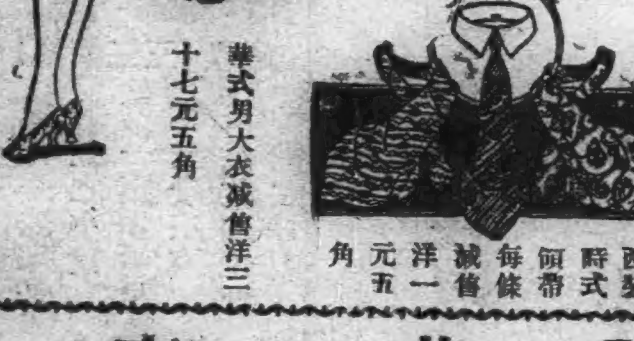 西裝
時式
領帶
每條
減售
洋一
元五
角
華式男大衣減售洋三
十七元五角